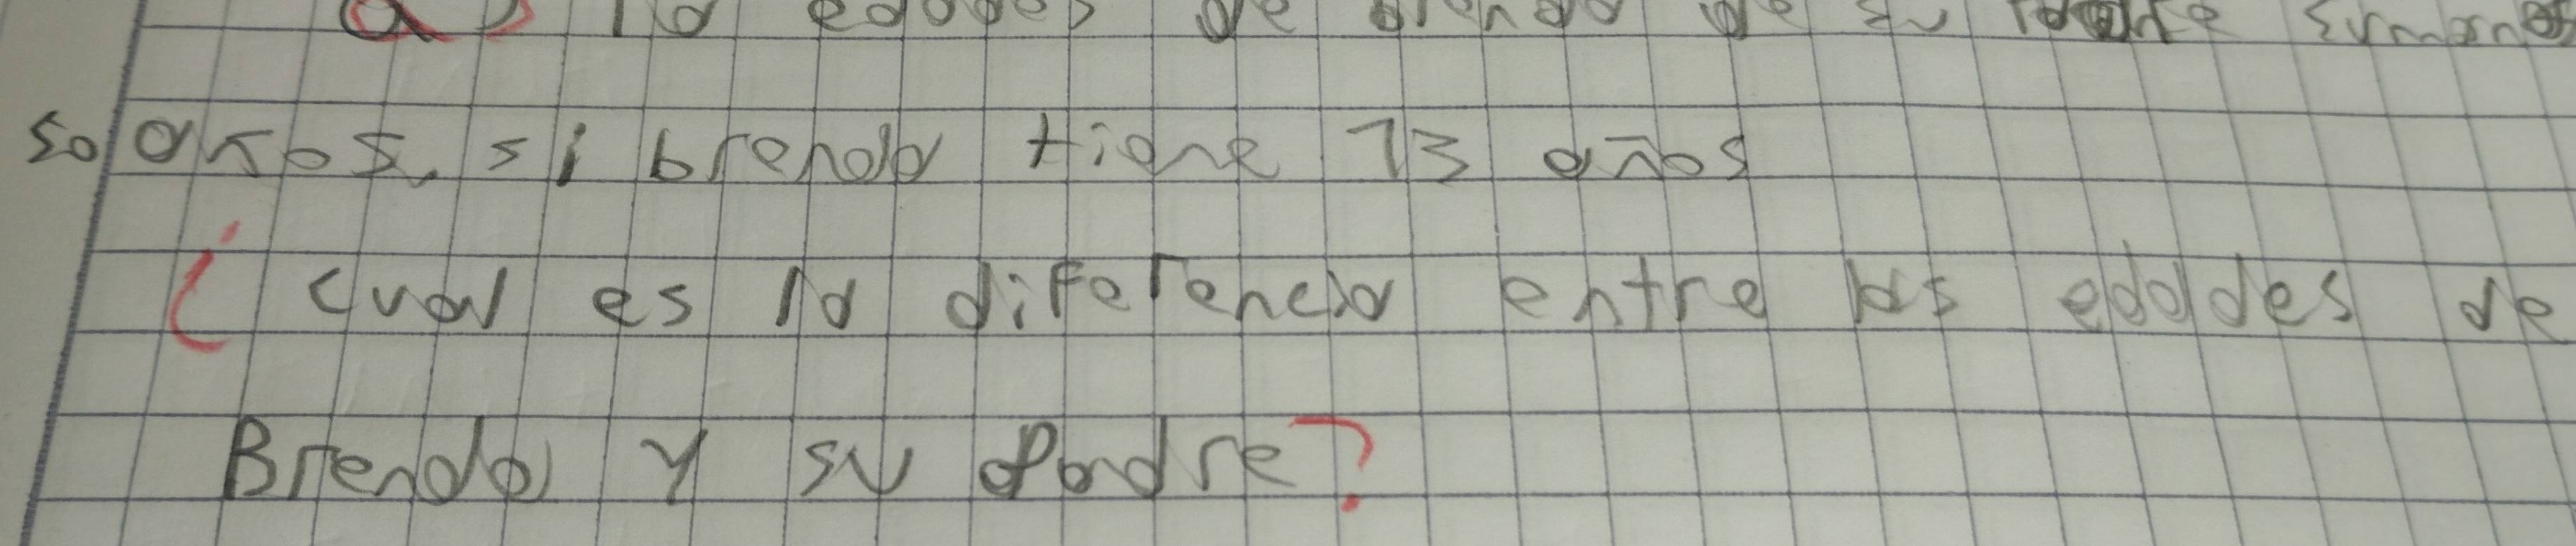 a) la edades de brenda de su Padre suman
50 años. si brenda tiene 13 años
¿cual es la diferencia entre las edades de
Brenda y su Padre?